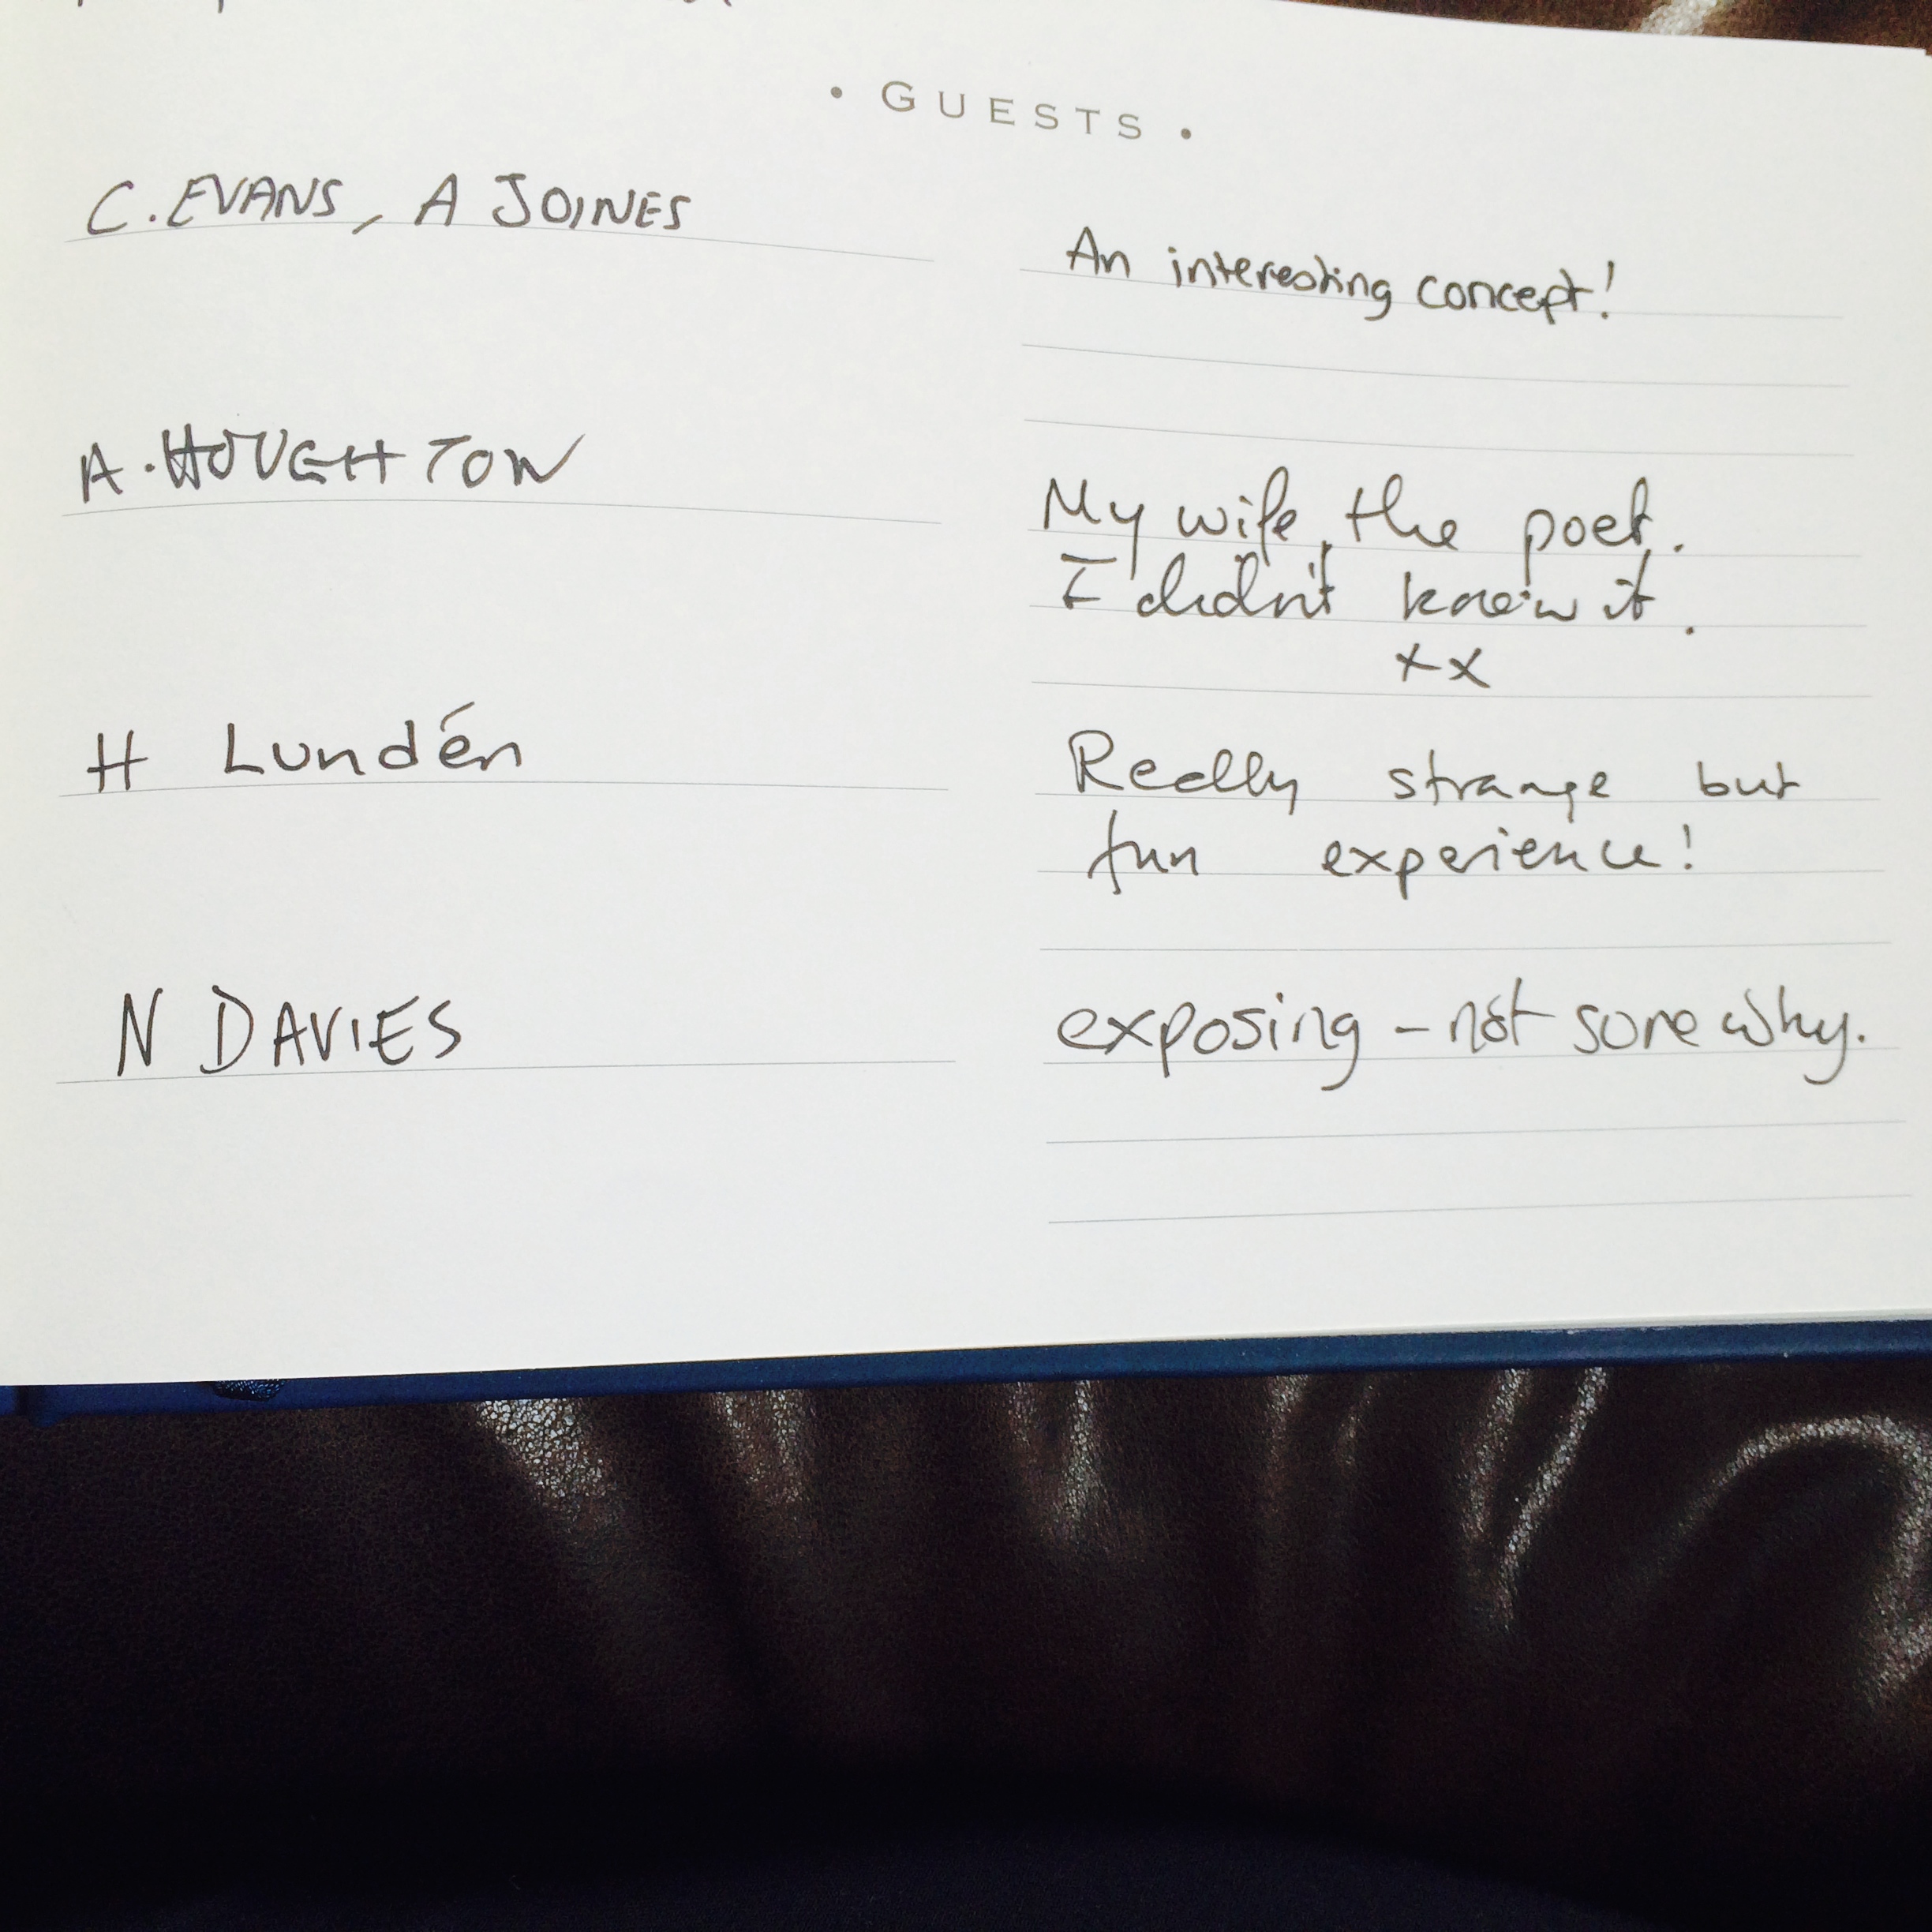 • GUESTS •
C. EVANS, A JOINES
An interesting concept!
A. HOUGHTON
My wife, the poet.
I didn't know it.
xx
H Lundén
Really strange but
fun experience!
N DAVIES
exposing – not sure why.